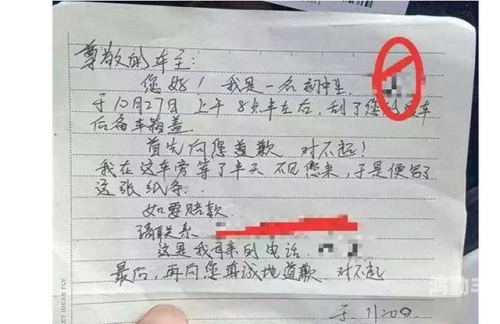 尊敬的车主:
您好! 我是一名初中生,
于10月27日上午8点半左右,刮了您的车
后备车箱盖
首先向您道歉 对不起!
我在这车旁等了半天 不见您来,于是便写了
这张纸条.
如要赔款
请联系
这是我母亲的电话.
最后,再向您真诚地道歉 对不起
于